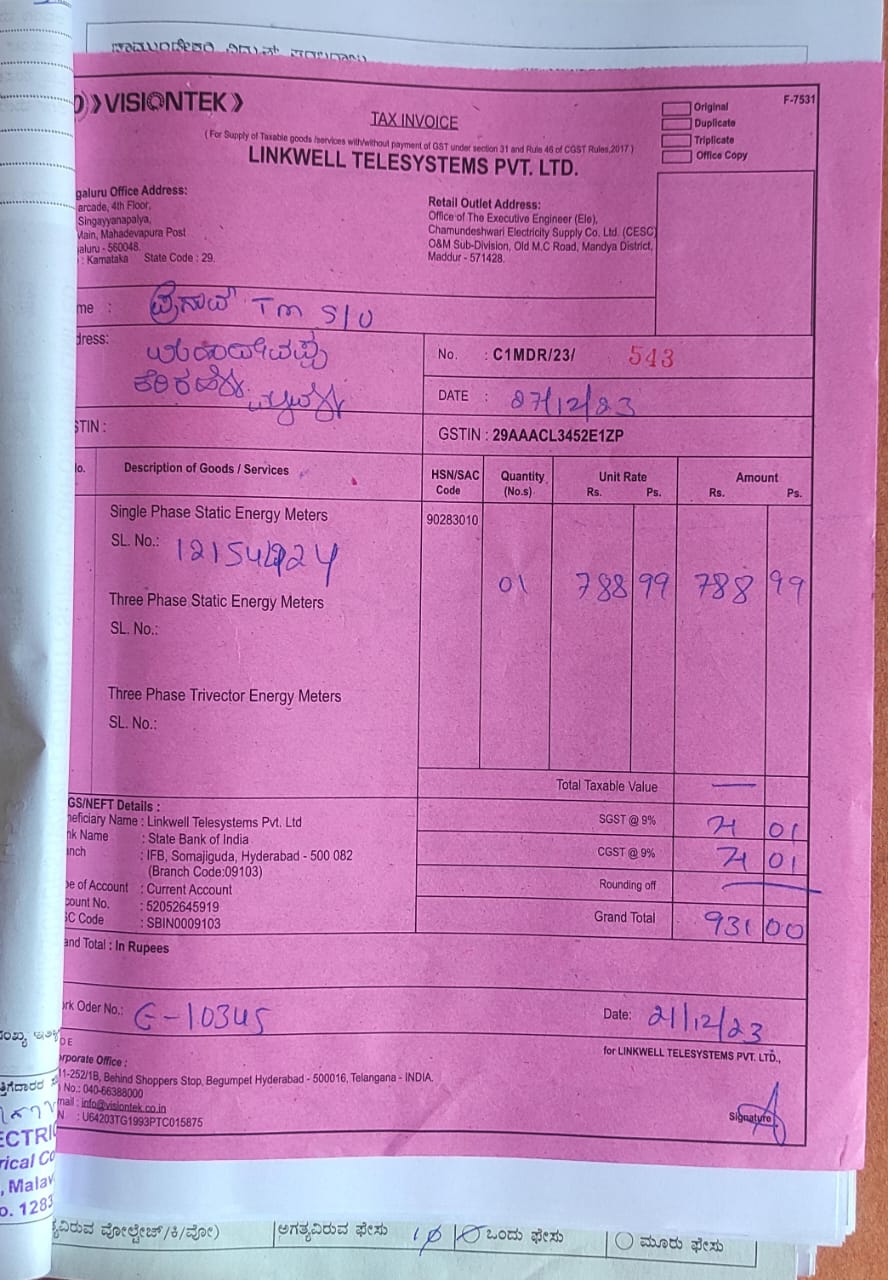 VISIONTEK
F-7531
TAX INVOICE
Original
Duplicate
Triplicate
Office Copy
( For Supply of Taxable goods /services with/without payment of GST under section 31 and Rule 46 of CGST Rules,2017 )
LINKWELL TELESYSTEMS PVT. LTD.
galuru Office Address:
arcade, 4th Floor,
Singayyanapalya,
Main, Mahadevapura Post
aluru - 560048.
: Karnataka State Code : 29.
Retail Outlet Address:
Office of The Executive Engineer (Ele),
Chamundeshwari Electricity Supply Co. Ltd. (CESC)
O&M Sub-Division, Old M.C Road, Mandya District,
Maddur - 571428.
me : TM S/O
dress:
No. : C1MDR/23/ 543
DATE : 27/12/23
STIN :
GSTIN : 29AAACL3452E1ZP
o. Description of Goods / Services HSN/SAC Code Quantity (No.s) Unit Rate Rs. Ps. Amount Rs. Ps.
Single Phase Static Energy Meters 90283010
SL. No.:
01 788 99 788 99
Three Phase Static Energy Meters
SL. No.:
Three Phase Trivector Energy Meters
SL. No.:
Total Taxable Value —
GS/NEFT Details :
eficiary Name : Linkwell Telesystems Pvt. Ltd
nk Name : State Bank of India
anch : IFB, Somajiguda, Hyderabad - 500 082
(Branch Code:09103)
pe of Account : Current Account
count No. : 52052645919
SC Code : SBIN0009103
SGST @ 9% 71 01
CGST @ 9% 71 01
Rounding off —
Grand Total 931 00
and Total : In Rupees
ork Oder No.: G-10345
Date: 21/12/23
for LINKWELL TELESYSTEMS PVT. LTD.,
orporate Office :
11-252/1B, Behind Shoppers Stop, Begumpet Hyderabad - 500016, Telangana - INDIA.
No.: 040-66388000
mail : info@visiontek.co.in
N : U64203TG1993PTC015875
Signature
ECTRI
rical Co
, Malav
o. 1283
ವಿರುವ ವೋಲ್ಟೇಜ್/ಕಿ/ವೋ) ಅಗತ್ಯವಿರುವ ಫೇಸು 1φ ಒಂದು ಫೇಸು ಮೂರು ಫೇಸು